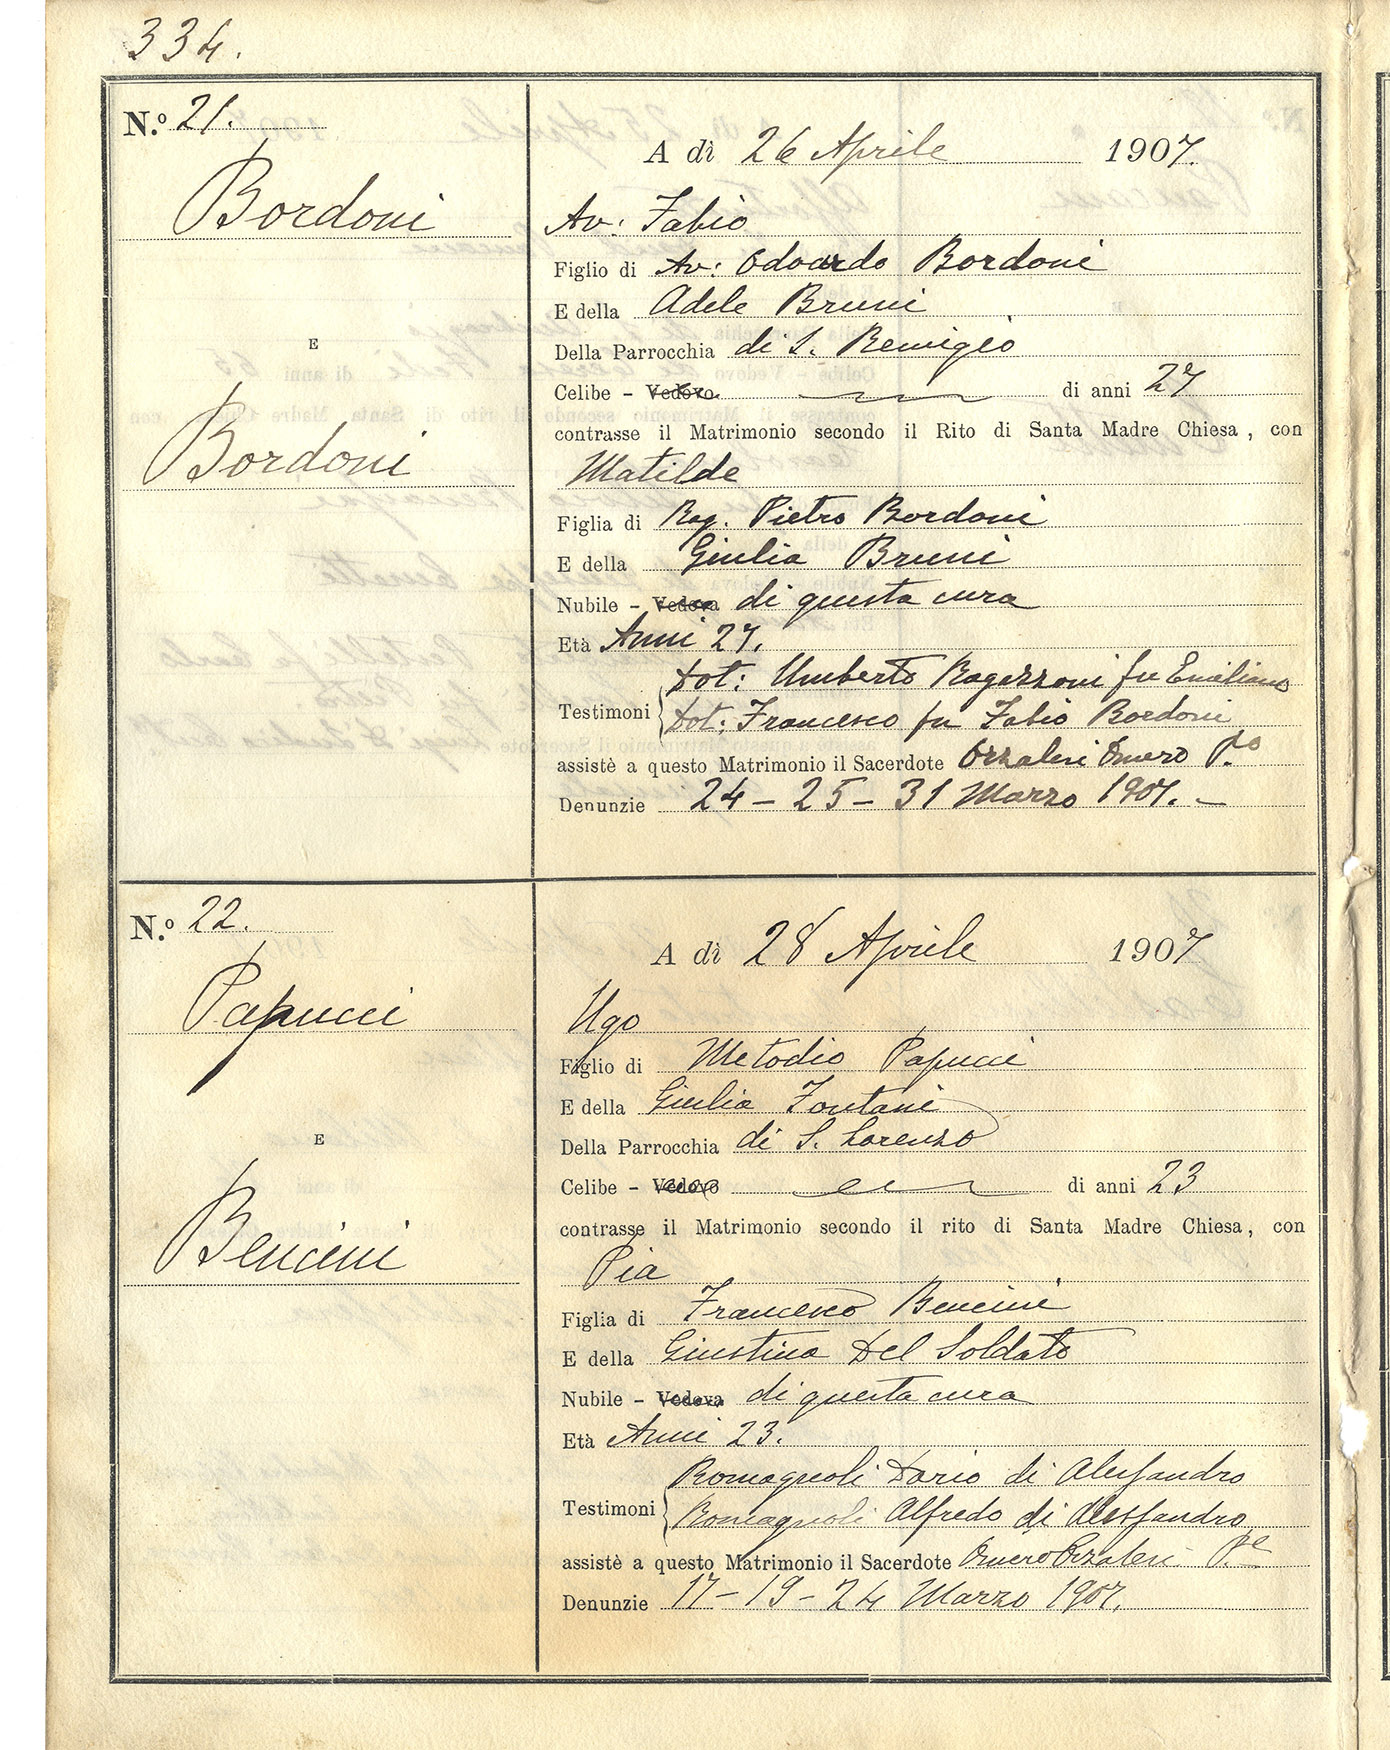 334.
N.º 21.
Bordoni
E
Bordoni
A dì 26 Aprile 1907.
Av: Fabio
Figlio di Av: Odoardo Bordoni
E della Adele Bruni
Della Parrocchia di S. Remigio
Celibe – Vedovo di anni 27
contrasse il Matrimonio secondo il Rito di Santa Madre Chiesa, con
Matilde
Figlia di Rag. Pietro Bordoni
E della Giulia Bruni
Nubile – Vedova di questa cura
Età Anni 27.
Dot: Umberto Ragezzoni fu Emiliano
Testimoni Dot: Francesco fu Fabio Bordoni
assistè a questo Matrimonio il Sacerdote Orzalesi Omero P.o
Denunzie 24 – 25 – 31 Marzo 1907. –
N.º 22.
Papucci
E
Bencini
A dì 28 Aprile 1907
Ugo
Figlio di Metodio Papucci
E della Giulia Fontani
Della Parrocchia di S. Lorenzo
Celibe – Vedovo di anni 23
contrasse il Matrimonio secondo il rito di Santa Madre Chiesa, con
Pia
Figlia di Francesco Bencini
E della Giustina Del Soldato
Nubile – Vedova di questa cura
Età Anni 23.
Romagnoli Dario di Alessandro
Testimoni Romagnoli Alfredo di Alessandro
assistè a questo Matrimonio il Sacerdote Omero Orzalesi P.e
Denunzie 17 – 19 – 24 Marzo 1907.